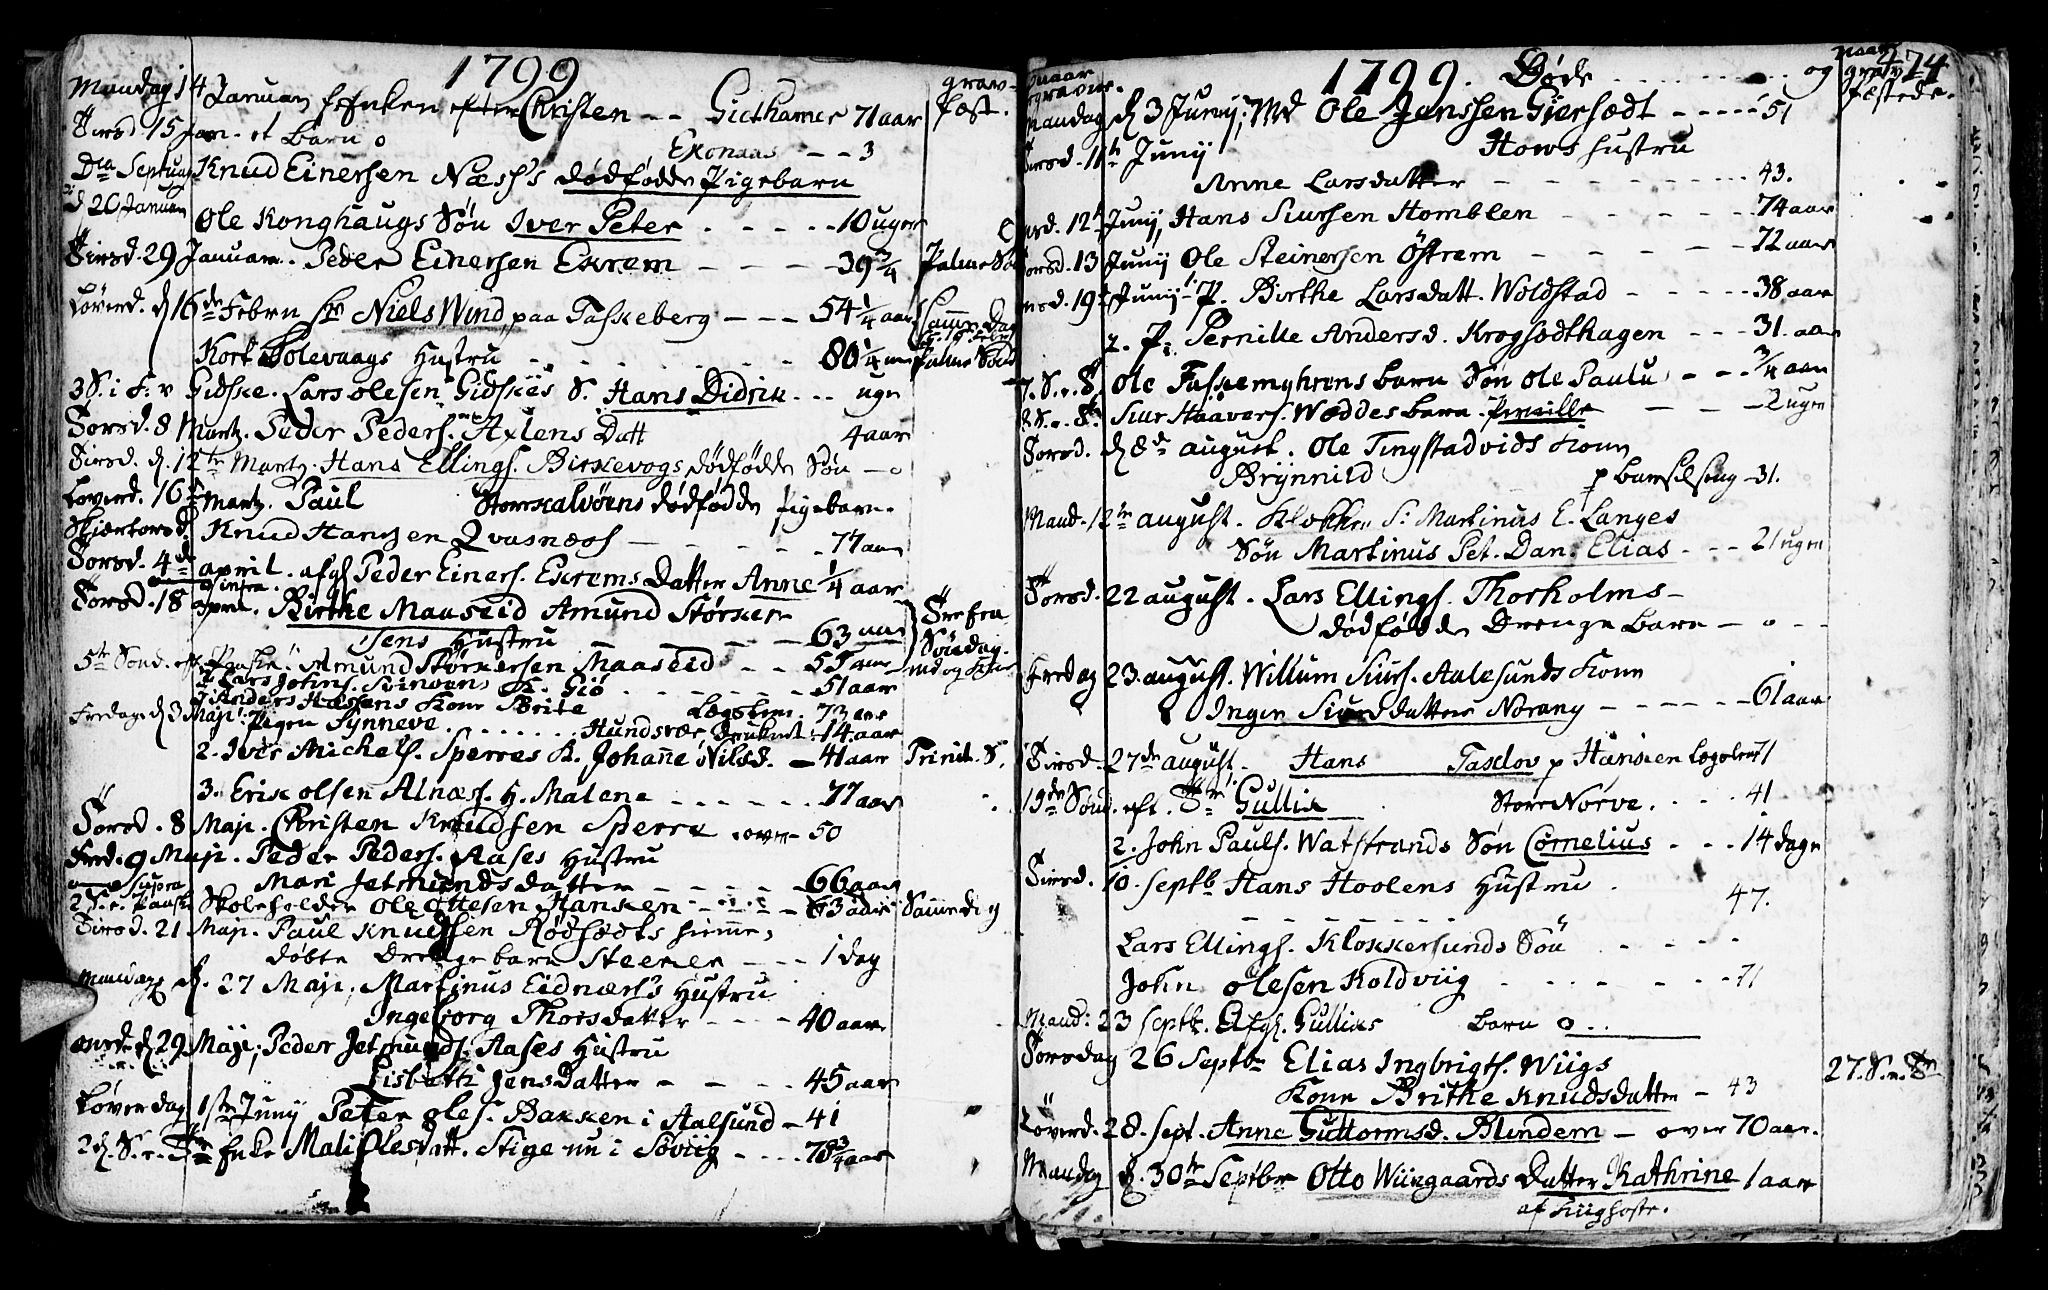 1799
grav-
fæst.
Mandag 14 Januari Enken efter Christen -- Giethamer 71 aar
Tirsd 15 Jan. et Barn o Exonaas -- 3
Dca Septuag Knud Einersen Næss's dødfødde Pigebarn
d 20 Januari
Ole Konghaugs Søn Iver Peter . - - - 10 uger
Tirsd. 29 Januari. Peder Einersen Exrem - - - 39 3/4 Palme Sø
Løverd. d 16de Febru Sr Niels Wind paa Faskeberg --- 54 1/4 aar
Kort Solevaags Hustru - - - 80 1/4 Palme Sønd
3 S. i F: v Gidske. Lars Olesen Gidskes S. Hans Didrik - - - uger
Torsd. 8 Martz. Peder Peders. Axlens Datt 4 aar
Tirsd. d. 12te Martz. Hans Ellings. Birkevogs dødfødde Søn - o
Løverd. 16 Martz. Paul Storkalvøens dødfødde Pigebarn.
Skjærtorsd. Knud Hansen Qvasnæss - - - 77 aar
Torsd. 4de april. afgl Peder Einers. Exrems Datter Anne 1/4 aar
Torsd. 18 april. Birthe Maaseid Amund Størker
sens Hustru - - - 63 aar
5te Sønd. eft. Paaske: Amund Størkersen Maaseid - - 55 aar
Lars Johns. K. Giø - - - 51 aar
Anders Hassens Kone Brite 73 aar
Fredag d 3 Maji: Pigen Synneve - - - Hundsvær druknt: 14. aar
2. Iver Michels. Sperres K. Johanne Nilsd. - 41 aar Trinit. S.
3. Erik Olsen Alnæss. H. Malene - - - 77 aar
Torsd. 8 Maji. Christen Knudsen Sperre over - 50
Fred. 9 Maji. Peder Peders. Aases Hustru
Mari Jetmundsdatter - - - 66 aar
2 S. e. Paaske Skoleholder Ole Ottesen Hansken - - - 63 aar Samme dag
Tirsd. 21 Maji. Paul Knudsen Rødsædts hiemme-
døbte Drengebarn Steener - - - 1 dag
Mandag d. 27 Maji, Martinus Eidnæss's Hustru
Ingeborg Thorsdatter - - - 40 aar
onsd. d. 29 Maji; Peder Jetmunds. Aases Hustru
Lisbeth Jensdatter - - - 45 aar
Løverdag 1ste Junij Peter Oles. Bakken i Aalsund - 41
2d. S. e. Tr Enke Mali Olesdatt. Stige nu i Søviig - - - 78 3/4 aar
1799. Døde - - - og naar grav
fæstede. 474
naar
gravne.
Mandag d 3 Junij; Md Ole Jenssen Giersædt - - - 51
Tirsd. 11te Junij Hows hustru
Anne Larsdatter - - - 43.
onsd. 12te Junij, Hans Siursen Homblen - - - 74 aar
Torsd. 13 Junij Ole Steinersen Østrem - - - 72 aar
onsd. 19de Junij 1. P. Birthe Larsdatt. Woldstad - - - 38 aar
2. P. Pernille Andersd. Krogsædthagen - - - 31. aar
7. S. e. Tr Ole Faskemyhrens barn Søn Ole Paulu - - 3/4 aar
8 S. e. Tr. Siur Haavers. Wæddes barn Pernille - - - 2 uger
Torsd. d 8de august. Ole Tingstadvids Kone
Brynnild p barselseng - 31.
Mand. 12te august. Klokker Sr Martinus E. Langes
Søn Martinus Pet. Dan. Elias - - - 21 uger
Torsd. 22 august. Lars Ellings. Thorholms-
dødfødde Drenge Barn - o - -
Fredag 23. august. Willum Siurs. Aalesunds Kone
Inger Siursdatter Norang - - - 61 aar
Tirsd. 27de august. Hans Taxlov p Hansken Lægslem 71
19de Sønd. eft. Tr: 1. Gullik Store Norve. - - - 41
2. John Pauls. Watstrands Søn Cornelius - - - 14 dage
Tirsd. 10. Septb Hans Hoolens Hustru
- - - 47.
Lars Ellings. Klokkersunds Søn - - -
John Olesen Koldviig - - - 71
Mand: 23 Septb. Afgl. Gulliks barn o - -
Torsdag 26 Septbr Elias Ingbrigts. Wiigs
Kone Brithe Knudsdatter - 43 27. S. e. Tr
Løverd. 28. Sept. Anne Guttormsd. Blindem - over 70 aar.
Mandag d. 30te Septbr Otto Wiingaards Datter Kathrine 1 aar